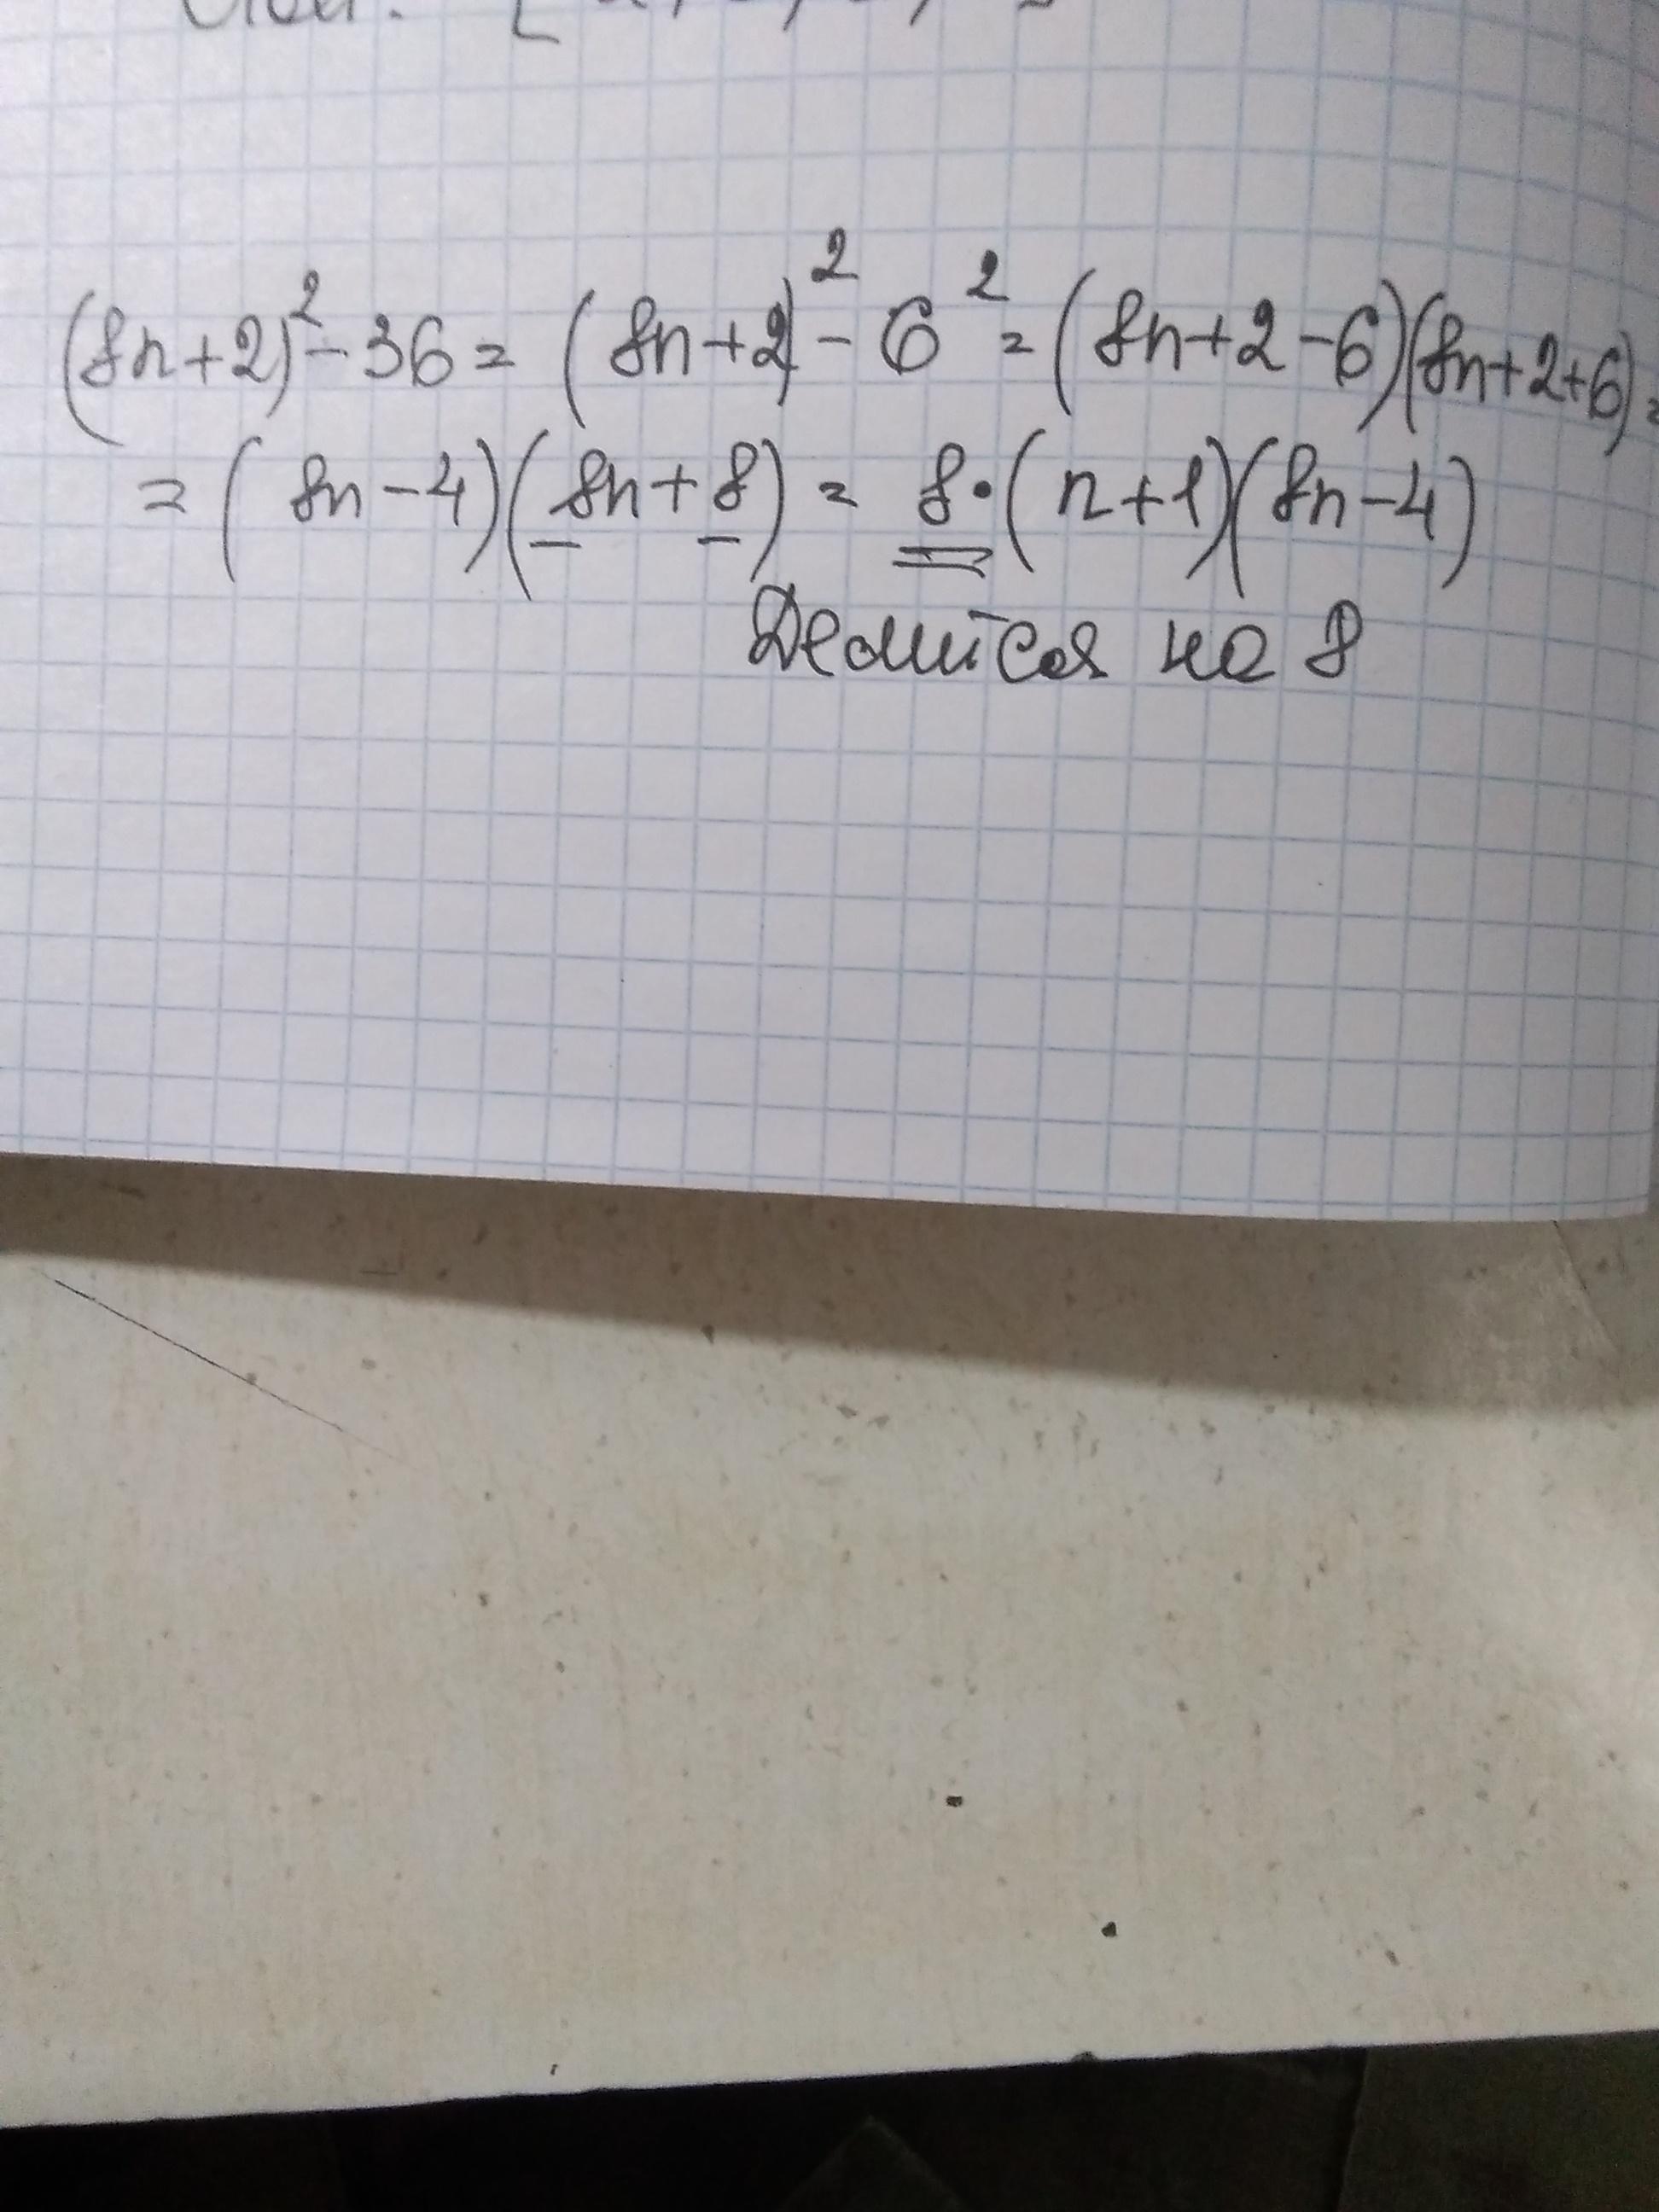 (8n+2)²-36=(8n+2)²-6²=(8n+2-6)(8n+2+6)=
=(8n-4)(8n+8)=8·(n+1)(8n-4)
Делится на 8